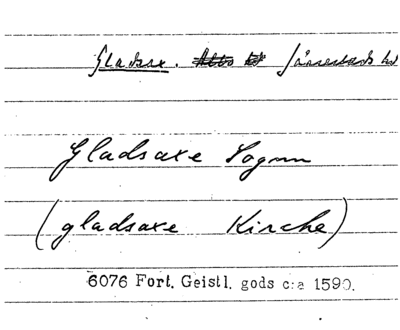 Gladsax. Järrestads hd
Gladsaxe Sognn
(gladsaxe Kirche)
6076 Fort. Geistl. gods c:a 1590.